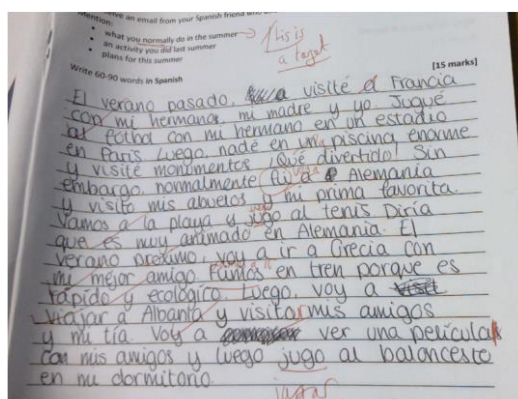 ention:
eive an email from your Spanish friend who
what you normally do in the summer
an activity you did last summer
plans for this summer
This is
a target
[15 marks]
Write 60-90 words in Spanish
El verano pasado, visité a Francia
con mi hermana, mi madre y yo Jugué
al fútbol con mi hermano en un estadio
en París Luego, nadé en una piscina enorme
y visité monumentos ¡Qué divertido! Sin
embargo, normalmente a Alemania
y visito mis abuelos y mi prima favorita
Vamos a la playa y jugo al tenis Diría
que es muy animado en Alemania. El
verano próximo, voy a ir a Grecia con
mi mejor amigo Fuimos en tren porque es
rápido y ecológico. Luego, voy a
viajar a Albania y visitar mis amigos
y mi tía. Voy a ver una película
con mis amigos y luego jugo al baloncesto
en mi dormitorio.
jugar